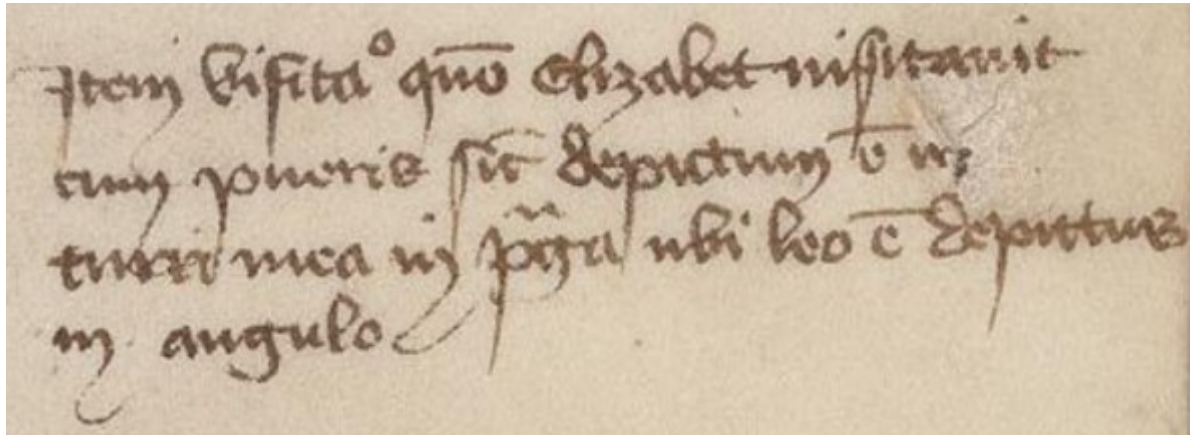 Item visita͡o quō Elizabet uisitauit
cum pueris sic̄ depictum ē in
turri mea in p̲ᵃga ubi leo ē depictus
in angulo